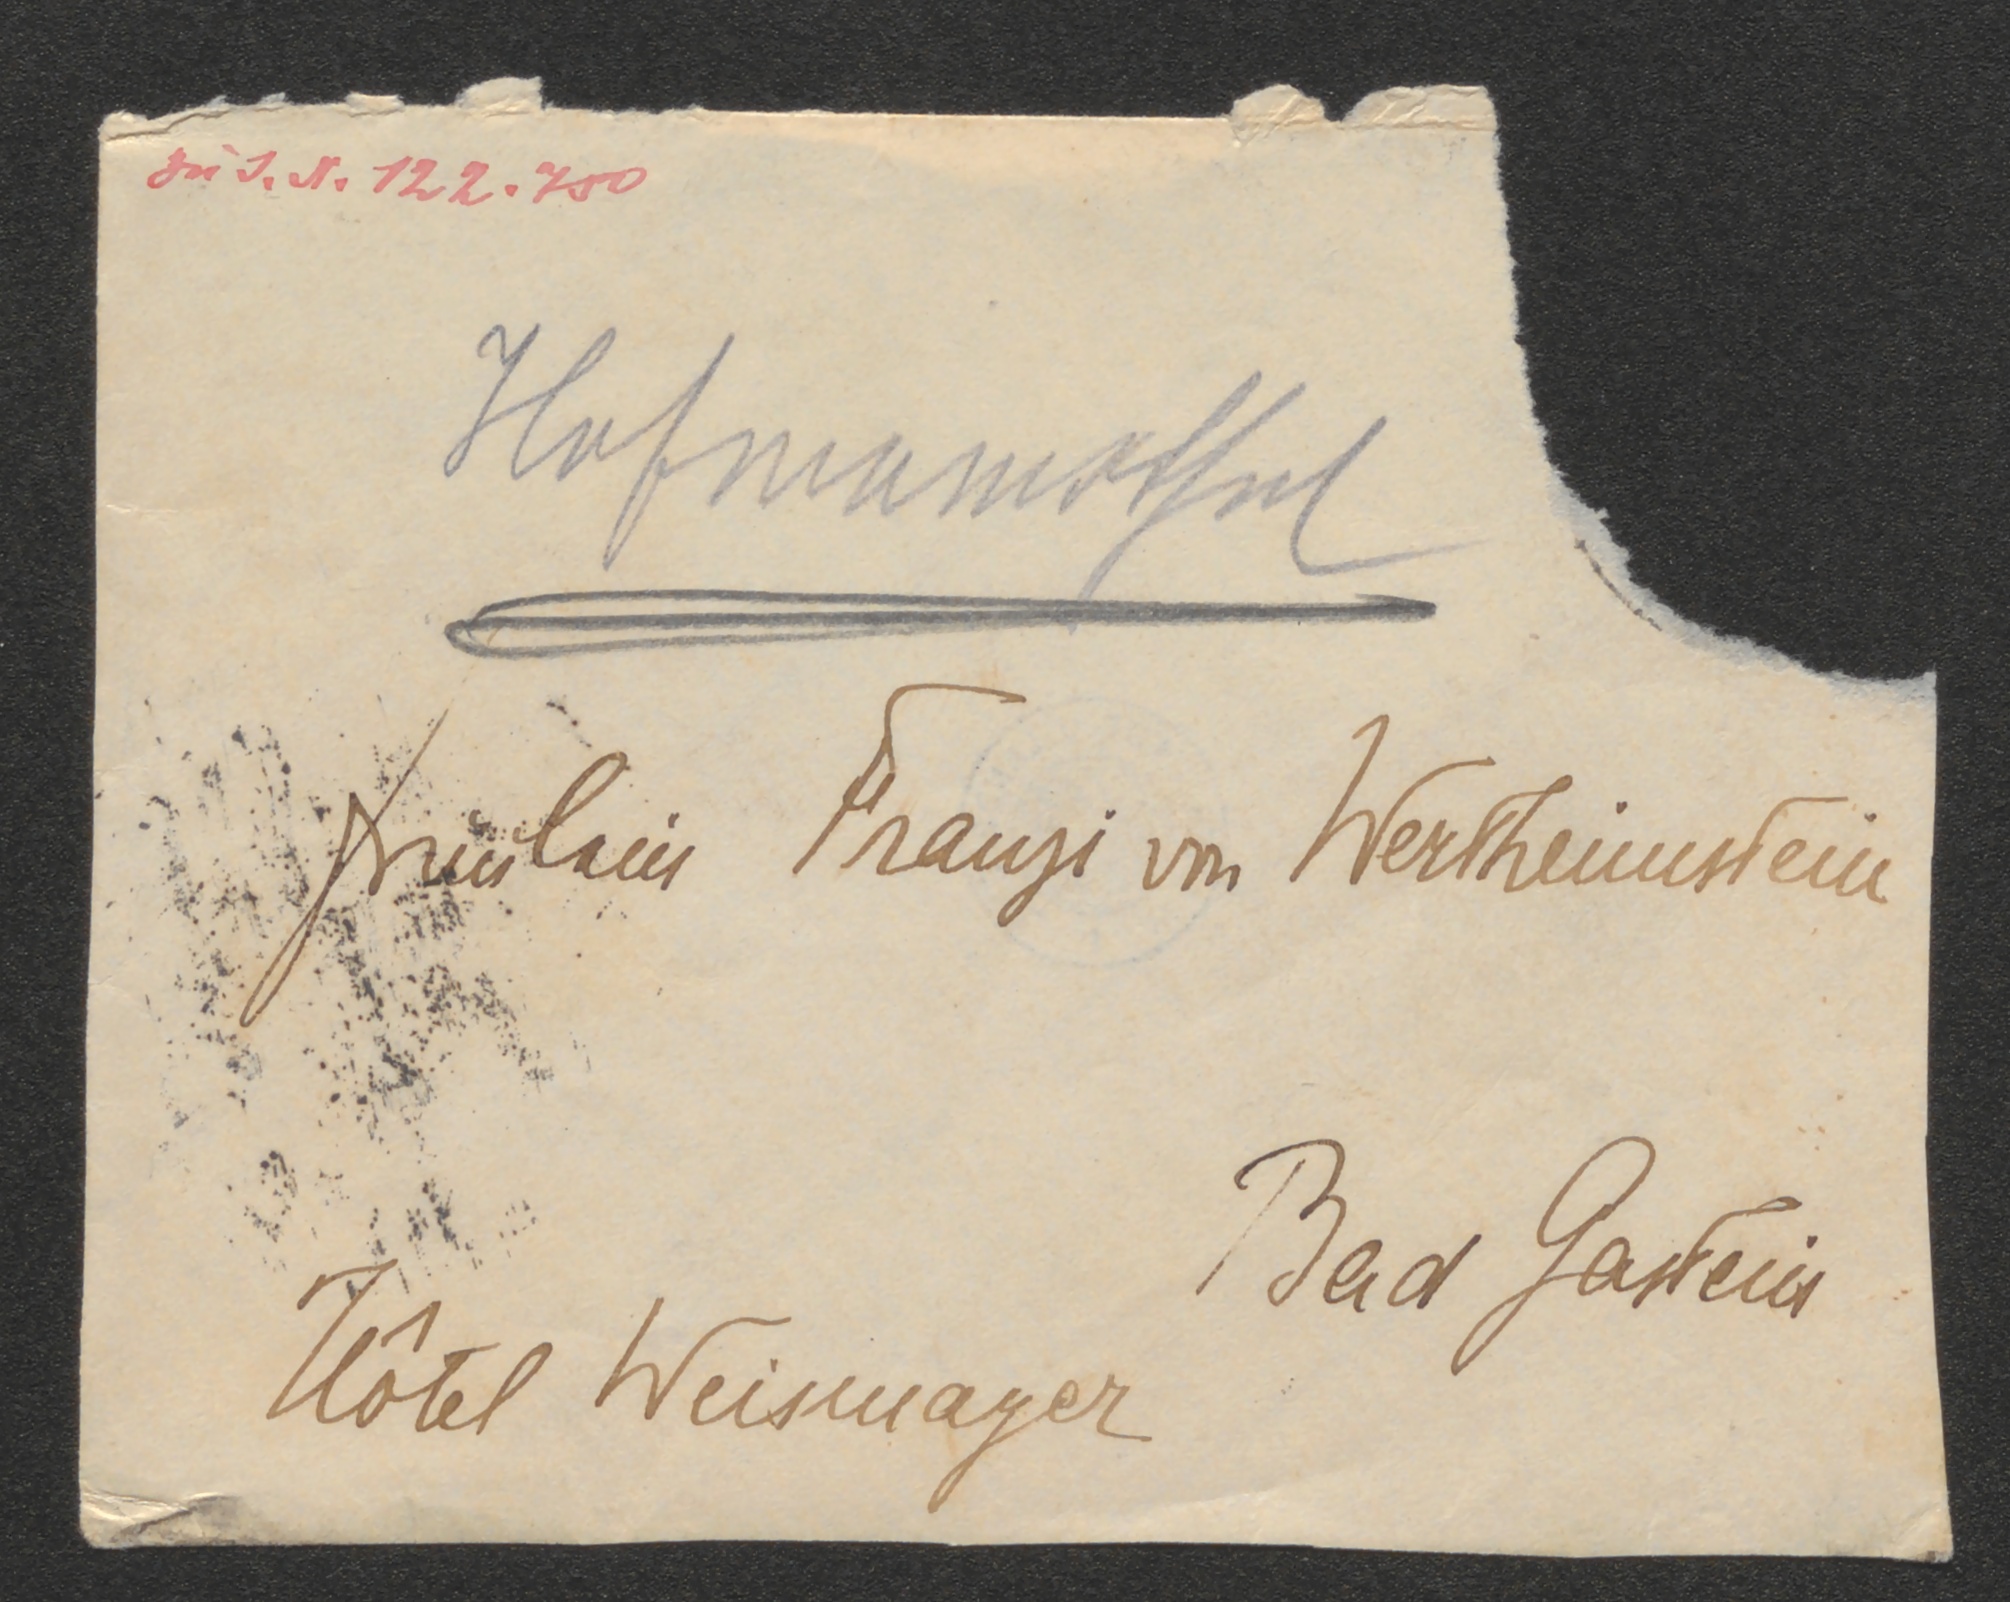 zu I. N. 122.750
Hofmannsthal
Fräulein Franzi von Wertheimstein
Bad Gastein
Hôtel Weismayer